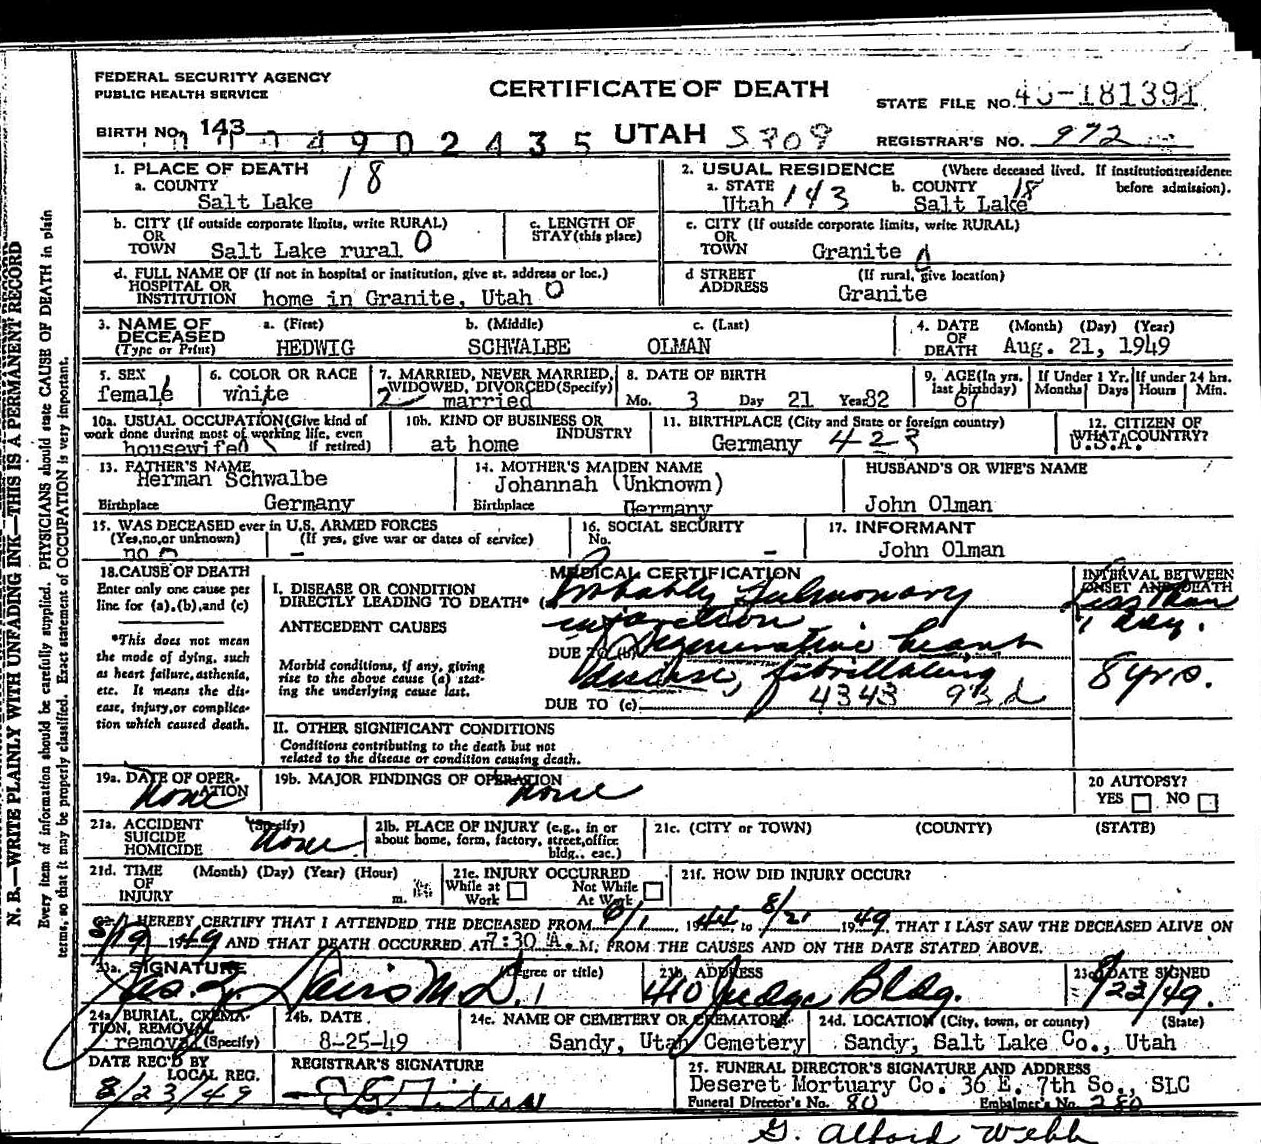 FEDERAL SECURITY AGENCY
PUBLIC HEALTH SERVICE
CERTIFICATE OF DEATH
STATE FILE NO. 181391
BIRTH NO. 143
4902435 UTAH S709
REGISTRAR'S NO. 972
1. PLACE OF DEATH 18
a. COUNTY
Salt Lake
2. USUAL RESIDENCE (Where deceased lived. If institution:residence before admission).
a. STATE b. COUNTY 18
Utah 143 Salt Lake
b. CITY (If outside corporate limits, write RURAL)
OR
TOWN Salt Lake rural 0
c. LENGTH OF
STAY (this place)
c. CITY (If outside corporate limits, write RURAL)
OR
TOWN Granite
d. FULL NAME OF (If not in hospital or institution, give st. address or loc.)
HOSPITAL OR
INSTITUTION home in Granite, Utah 0
d STREET (If rural, give location)
ADDRESS Granite
3. NAME OF a. (First) b. (Middle) c. (Last)
DECEASED
(Type or Print) HEDWIG SCHWALBE OLMAN
4. DATE (Month) (Day) (Year)
OF
DEATH Aug. 21, 1949
5. SEX
female
6. COLOR OR RACE
white
7. MARRIED, NEVER MARRIED,
WIDOWED, DIVORCED (Specify)
2 married
8. DATE OF BIRTH
Mo. 3 Day 21 Year 82
9. AGE (In yrs. last birthday)
67
If Under 1 Yr. Months Days
If under 24 hrs. Hours Min.
10a. USUAL OCCUPATION (Give kind of
work done during most of working life, even
if retired)
housewife
10b. KIND OF BUSINESS OR
INDUSTRY
at home
11. BIRTHPLACE (City and State or foreign country)
Germany 423
12. CITIZEN OF
WHAT COUNTRY?
U.S.A.
13. FATHER'S NAME
Herman Schwalbe
Birthplace Germany
14. MOTHER'S MAIDEN NAME
Johannah (Unknown)
Birthplace Germany
HUSBAND'S OR WIFE'S NAME
John Olman
15. WAS DECEASED ever in U.S. ARMED FORCES
(Yes, no, or unknown) (If yes, give war or dates of service)
no -
16. SOCIAL SECURITY
No. -
17. INFORMANT
John Olman
18. CAUSE OF DEATH
Enter only one cause per
line for (a), (b), and (c)
*This does not mean
the mode of dying, such
as heart failure, asthenia,
etc. It means the dis-
ease, injury, or complica-
tion which caused death.
MEDICAL CERTIFICATION
I. DISEASE OR CONDITION
DIRECTLY LEADING TO DEATH* (a) Probably Pulmonary
infarction
ANTECEDENT CAUSES
DUE TO (b) Degenerative heart
disease, fibrillating
Morbid conditions, if any, giving
rise to the above cause (a) stat-
ing the underlying cause last.
4343 93d
DUE TO (c)
INTERVAL BETWEEN
ONSET AND DEATH
Less than
1 day.
8 yrs.
II. OTHER SIGNIFICANT CONDITIONS
Conditions contributing to the death but not
related to the disease or condition causing death.
19a. DATE OF OPER-
ATION
None
19b. MAJOR FINDINGS OF OPERATION
None
20 AUTOPSY?
YES NO
21a. ACCIDENT (Specify)
SUICIDE
HOMICIDE None
21b. PLACE OF INJURY (e.g., in or
about home, form, factory, street, office
bldg., eac.)
21c. (CITY or TOWN) (COUNTY) (STATE)
21d. TIME (Month) (Day) (Year) (Hour)
OF
INJURY m.
21e. INJURY OCCURRED
While at Work Not While At Work
21f. HOW DID INJURY OCCUR?
22. I HEREBY CERTIFY THAT I ATTENDED THE DECEASED FROM 6/1, 1944 to 8/21 1949, THAT I LAST SAW THE DECEASED ALIVE ON
8/19 1949 AND THAT DEATH OCCURRED AT 7:30 A. M. FROM THE CAUSES AND ON THE DATE STATED ABOVE.
23a. SIGNATURE (Degree or title)
M.D.
23b. ADDRESS
410 Judge Bldg.
23c. DATE SIGNED
8/22/49.
24a. BURIAL, CREMA-
TION, REMOVAL
removal (Specify)
24b. DATE
8-25-49
24c. NAME OF CEMETERY OR CREMATORY
Sandy, Utah Cemetery
24d. LOCATION (City, town, or county) (State)
Sandy, Salt Lake Co., Utah
DATE REC'D BY
LOCAL REG.
8/23/49
REGISTRAR'S SIGNATURE
25. FUNERAL DIRECTOR'S SIGNATURE AND ADDRESS
Deseret Mortuary Co. 36 E. 7th So., SLC
Funeral Director's No. 80 Embalmer's No. 280
G. Alford Webb
N. B.—WRITE PLAINLY WITH UNFADING INK—THIS IS A PERMANENT RECORD
Every item of information should be carefully supplied. PHYSICIANS should state CAUSE OF DEATH in plain
terms, so that it may be properly classified. Exact statement of OCCUPATION is very important.